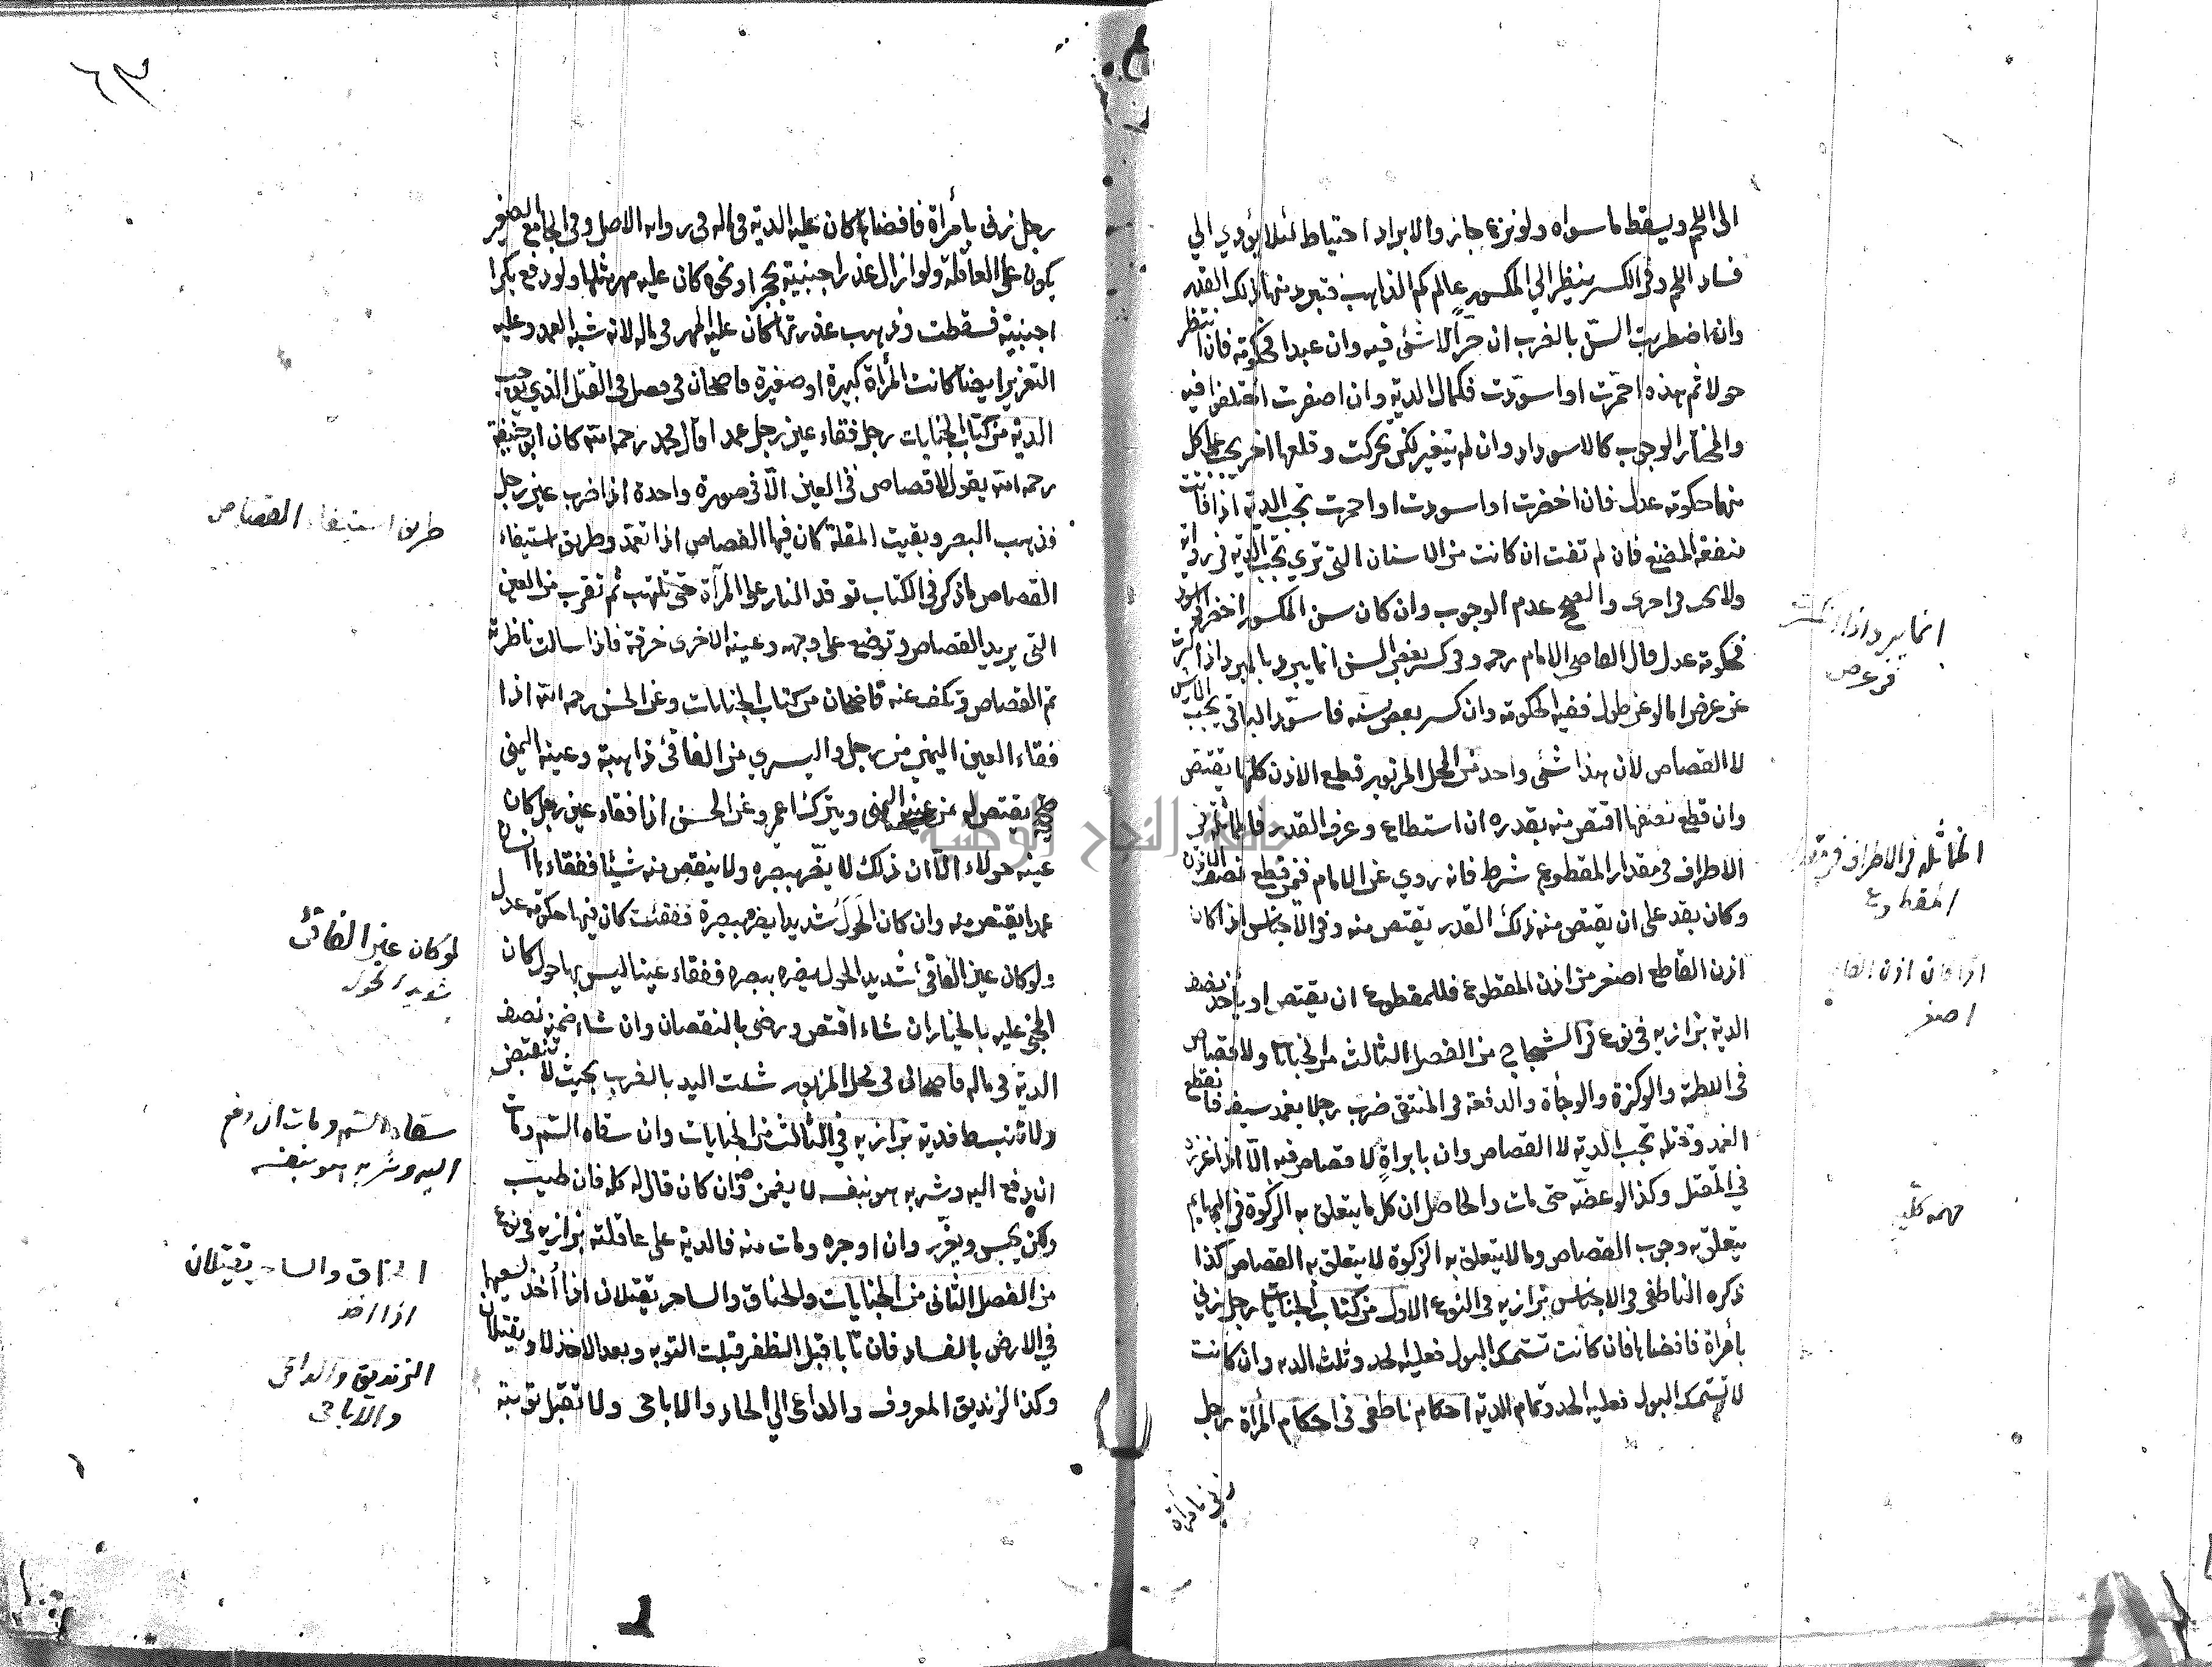 الى اللحم ويسقط ما سواه ولو نزع جاز والابراد احتياط لئلا يؤدي الي
فساد اللحم وفى الكسر ينظر الي المكسور عالم كم الذاهب فتبرد منها ذلك القدر
وان اضطربت السن بالضرب ان حرا لا شئ فيه وان عبدا فحكومة فان انتظر
حولا ثم هذه احمرت او اسودت فكمال الدية وان اصفرت اختلفوا فيه
والمختار الوجوب كالاسوداد وان لم يتغير لكن تحركت وقلعها اخر يجب على كل
منهما حكومة عدل فان اخضرت او اسودت او احمرت تجب الدية اذا فاتت
منفعة المضغ فان لم تفت ان كانت من الاسنان التى تري تجب الدية فى رواية
ولا فى اخرى والصحيح عدم الوجوب وان كان سن المكسور اخضر او اسود
فحكومة عدل قال القاضى الامام رحمه وفى كسر بعض السن انما يبرد بالمبرد اذا كسر
عن عرض اما لو عن طول ففيه الحكومة وان كسر بعض سنه فاسود الباقى يجب الارش
لا القصاص لأن هذا شئ واحد من المحل المزبور قطع الاذن كلها يقتص
وان قطع نصفها اقتص منه بقدره ان استطاع وعرف القدر فالمماثلة فى
الاطراف فى مقدار المقطوع شرط فانه روي عن الامام فيمن قطع نصف الاذن
وكان يقدر على ان يقتص منه ذلك القدر يقتص منه وفى الاجناس اذا كان
اذن القاطع اصغر من اذن المقطوع فللمقطوع ان يقتص او يأخذ نصف
الدية بزازيه فى نوع فى الشجاج من الفصل الثالث من الجنايات ولا قصاص
فى اللطمة والوكزة والوجأة والدفعة فى المنتقى ضرب رجلا بغمد سيف فانقطع
الغمد وقتله تجب الدية لا القصاص وان بابرة لا قصاص فيه الا اذا غرز
فى المقتل وكذا لو عضه حتى مات والحاصل ان كل ما يتعلق به الزكوة فى البهايم
يتعلق به وجوب القصاص وما لا يتعلق به الزكوة لا يتعلق به القصاص كذا
ذكره الناطفى فى الاجناس بزازيه فى النوع الاول من كتاب الجنايات رجل زني
بأمراة فافضاها فان كانت تستمسك البول فعليه الحد وثلث الديه وان كانت
لا تستمسك البول فعليه الحد وتمام الدية احكام ناطفى فى احكام المرأة رجل
زنى بامرأة
المماثلة فى الاطراف فى مقدار
المقطوع
اذا كان اذن القاطع
اصغر
مهمه كليه
٦٣
رجل زنى بأمراة فافضاها كان عليه الدية فى ماله فى رواية الاصل وفى الجامع الصغير
يكون على العاقلة ولو ازال عذرا اجنبية بحجر او نحوه كان عليه مهر مثلها ولو دفع بكرا
اجنبية فسقطت وذهب عذرتها كان عليه المهر فى ماله لانه شبه العمد وعليه
التعزير ايضا كانت المرأة كبيرة او صغيرة قاضيخان فى فصل فى القتل الذي يوجب
الدية من كتاب الجنايات رجل فقاء عين رجل عمدا قال محمد رحمه الله كان ابو حنيفة
رحمه الله يقول لا قصاص فى العين الا فى صورة واحدة اذا ضرب عين رجل
فذهب البصر وبقيت المقلة كان فيها القصاص اذا تعمد وطريق استيفاء
القصاص ما ذكر فى الكتاب توقد النار على المرآة حتى تلتهب ثم تقرب من العين
التى يريد القصاص وتوضع على وجهه وعينه الاخرى خرقة فاذا سالت ناظرته
تم القصاص وتكف عنه قاضيخان من كتاب الجنايات وعن الحسن رحمه الله اذا
فقاء العين اليمني من رجل واليسري من الفاقئ ذاهبة وعينه اليمنى
صحيحة يقتص له من عينه اليمنى ويترك اعمى وعن الحسن اذا فقاء عين رجل كان
عينه حولاء الا ان ذلك لا يضر ببصره ولا ينقص منه شيئا ففقاءها انسان
عمدا يقتص منه وان كان الحول شديدا يضر ببصره ففقئت كان فيها حكومة عدل
ولو كان عين الفاقئ شديد الحول يضره ببصره ففقاء عينا ليس بها حول كان
المجنى عليه بالخيار ان شاء اقتص ورضى بالنقصان وان شاء ضمنه نصف
الدية فى ماله قاضيخان فى المحل المزبور شلت اليد بالضرب بحيث لا تنقبض
ولا تنبسط فدية بزازيه فى الثالث من الجنايات وان سقاه السم ومات
ان دفع اليه وشربه هو بنفسه لا يضمن وان كان قال له كله فان طيب
ولكن يحبس ويعزر وان اوجره ومات منه فالدية على عاقلته بزازيه فى نوع
من الفصل الثانى من الجنايات والخناق والساحر يقتلان اذا أخذ لسعيها
فى الارض بالفساد فان تابا قبل الظفر قبلت التوبه وبعد الاخذ لا ويقتلان
وكذا الزنديق المعروف والداعى الي الحاد والاباحى ولا تقبل توبته
طريق استيفاء القصاص
لو كان عين الفاقئ
شديد الحول
سقاه السم ومات ان دفع
اليه وشربه هو بنفسه
الخناق والساحر يقتلان
اذا اخذ
الزنديق والداعى
والاباحى